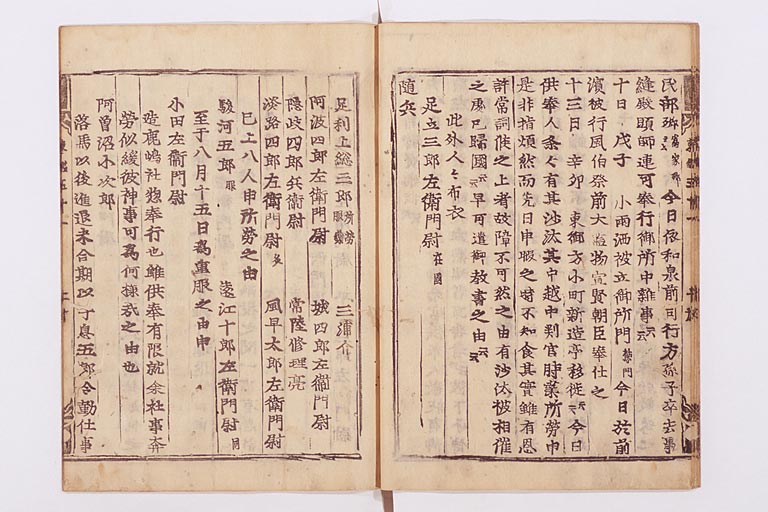 民部 今日依和泉前司行方孫子卒去事
縫殿頭師連可奉行御所中雜事云々
十日 戊子 小雨洒被立御所門 今日於前
濱被行風伯祭前大 宣賢朝臣奉仕之
十三日 辛卯 東御方小町新造亭移徙云々今日
供奉人条々有其沙汰其中越中判官時業所勞中
是非指煩然而先日申暇之時不知食其實雖有恩
許當祠使之上者故障不可然之由有沙汰被相催
之處已歸國云々早可遣御教書之由云々
此外人々布衣
足立三郎左衛門尉 在國
随兵
足利上総三郎 所労 服暇 三浦介
阿波四郎左衛門尉 城四郎左衛門尉
隠岐四郎兵衛尉 常陸修理亮
淡路四郎左衛門尉 風早太郎左衛門尉
已上八人申所勞之由
駿河五郎 服 遠江十郎左衛門尉 同
至于八月十五日爲重服之由申
小田左衛門尉
造鹿嶋社惣奉行也雖供奉有限就余社事奔
勞似緩彼神事可爲何様哉之由也
阿曽沼小次郎
落馬以後進退未合期以子息五郎令勤仕事